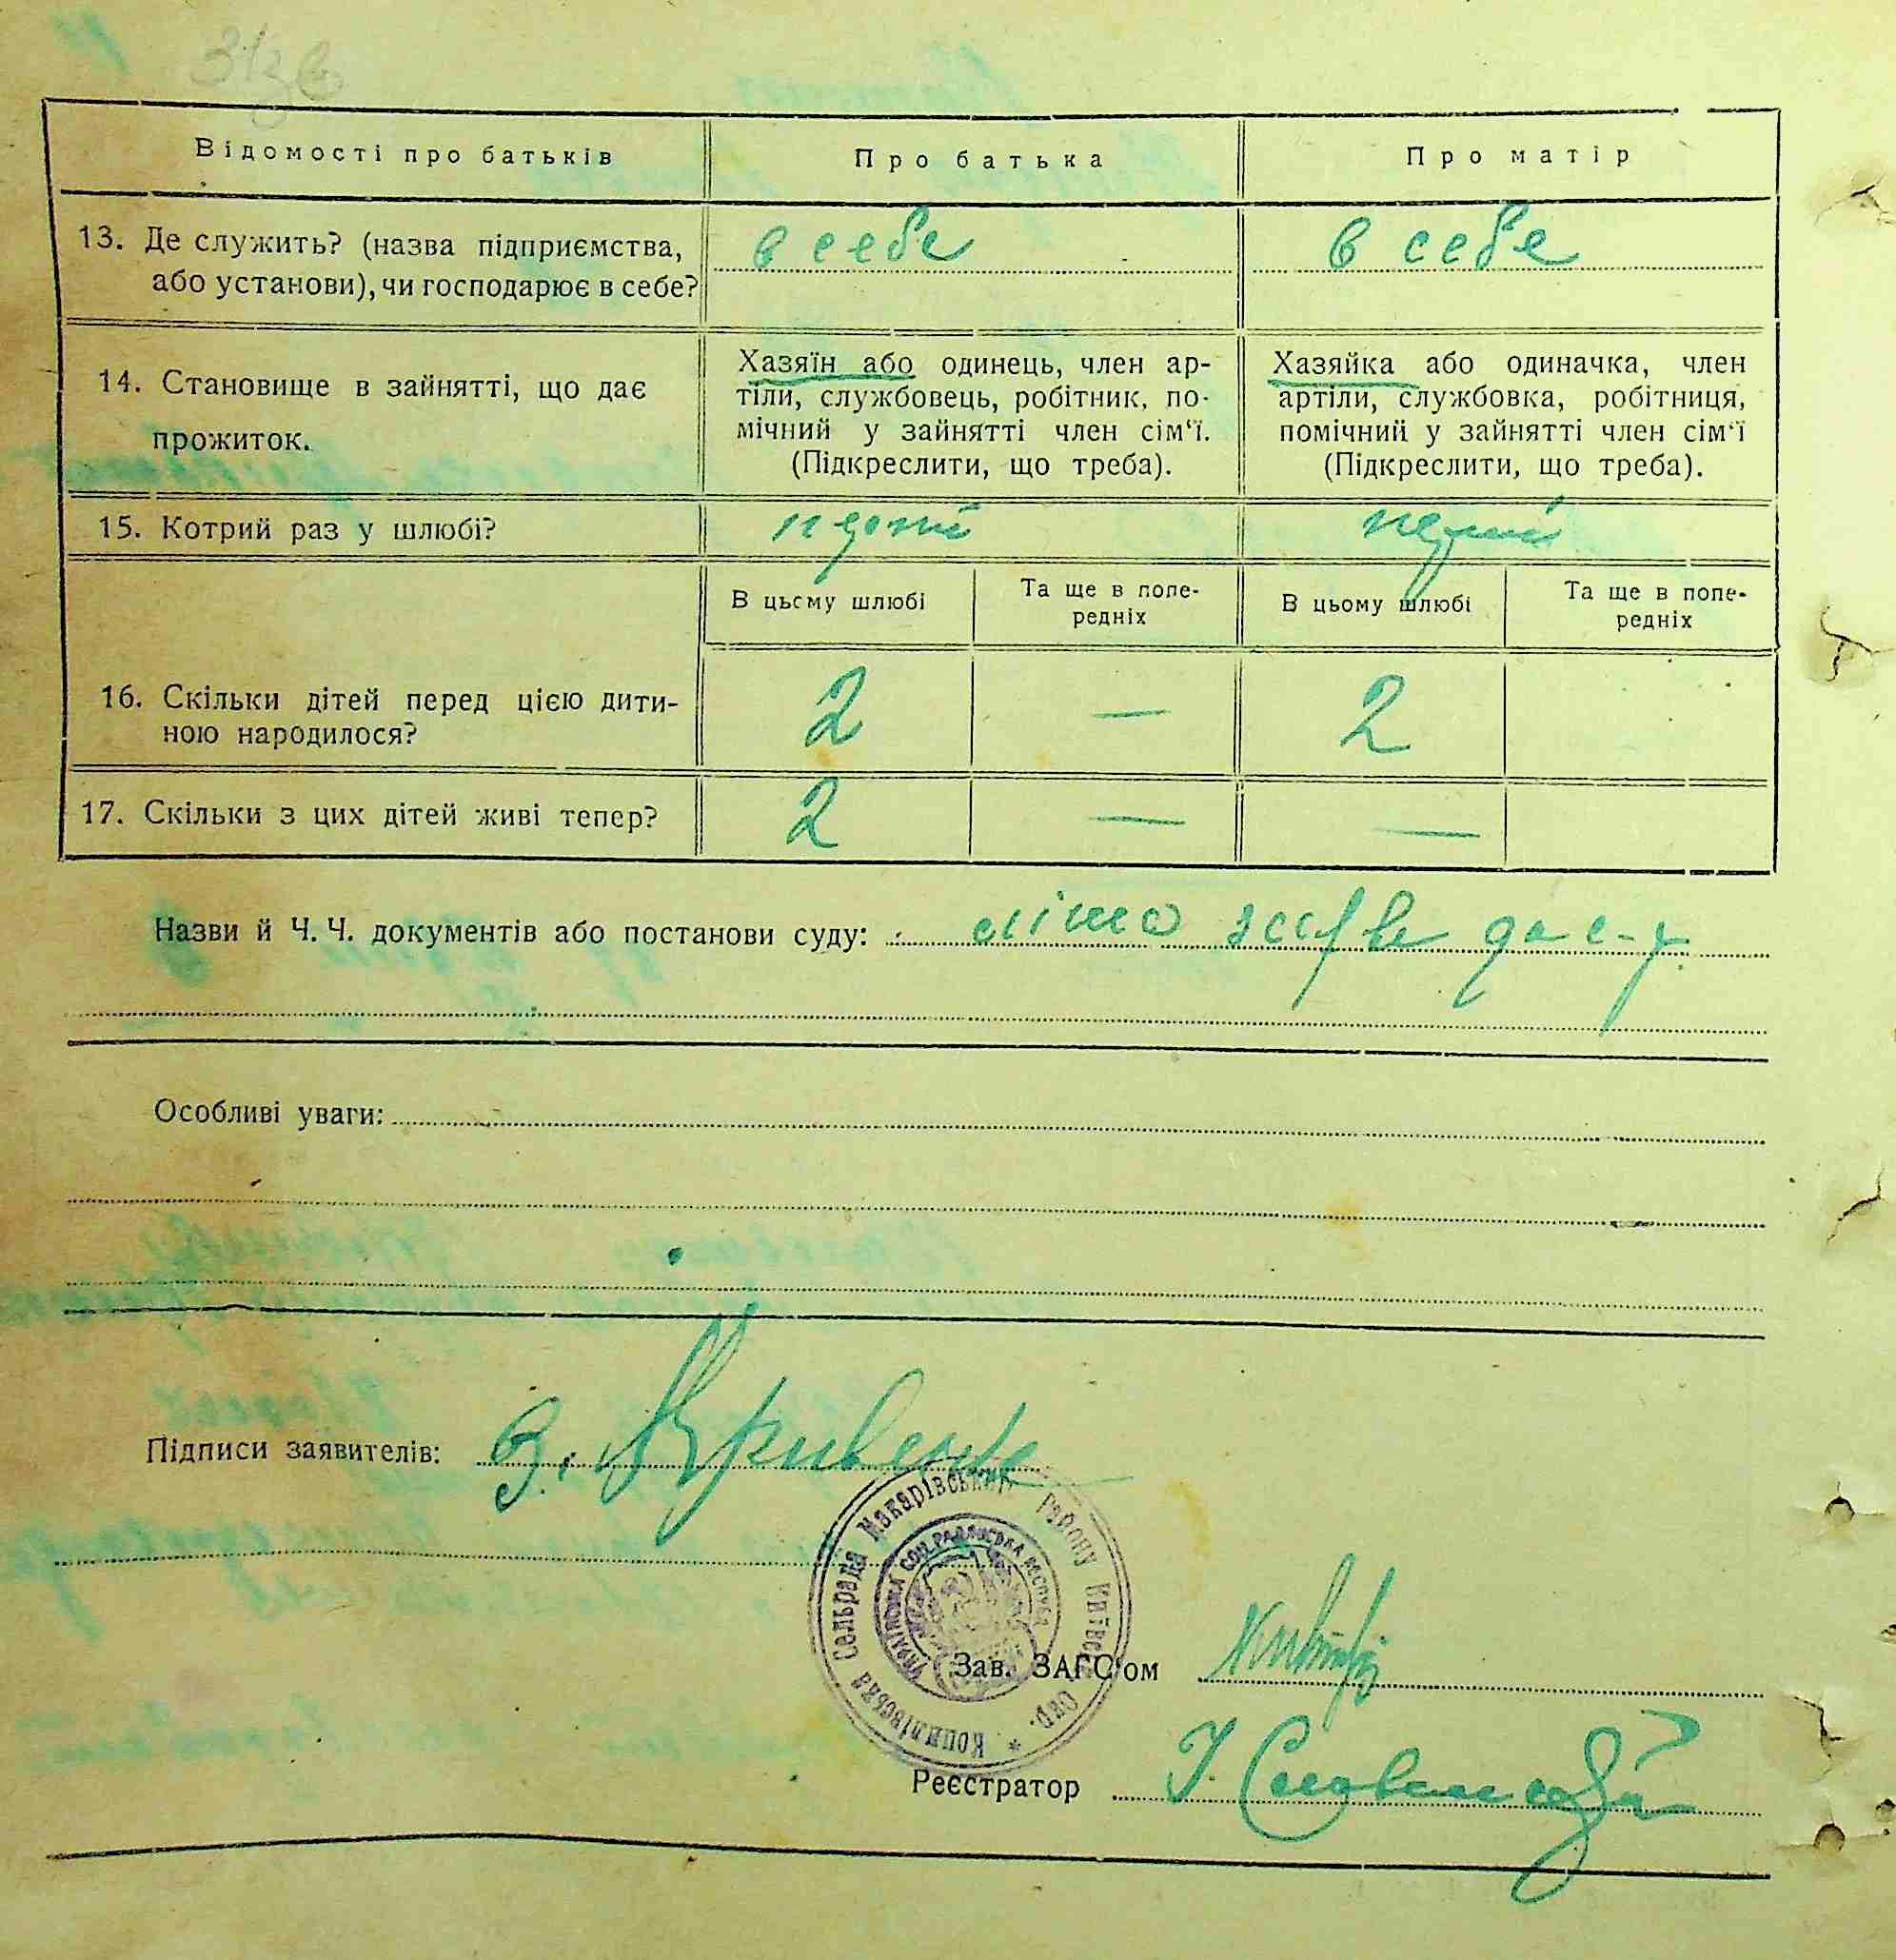 Відомості про батьків
Про батька
Про матір
13. Де служить? (назва підприємства,
або установи), чи господарює в себе?
в себе
в себе
14. Становище в зайнятті, що дає
прожиток.
Хазяїн або одинець, член ар-
тіли, службовець, робітник, по-
мічний у зайнятті член сім'ї.
(Підкреслити, що треба).
Хазяйка або одиначка, член
артіли, службовка, робітниця,
помічний у зайнятті член сім'ї
(Підкреслити, що треба).
15. Котрий раз у шлюбі?
В цьому шлюбі
Та ще в попе-
редніх
В цьому шлюбі
Та ще в попе-
редніх
16. Скільки дітей перед цією дити-
ною народилося?
2 — 2
17. Скільки з цих дітей живі тепер?
2 — —
Назви й Ч. Ч. документів або постанови суду:
Особливі уваги:
Підписи заявителів:
Копилівська Сельрада Макарівськ. району Київськ. Окр.
УКРАЇНСЬКА СОЦ. РАДЯНСЬКА
Зав. ЗАГС'ом
Реєстратор